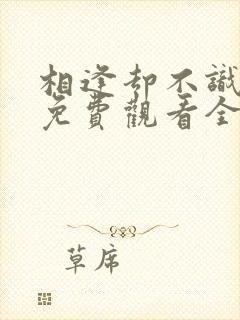 相逢却不識
免費觀看全
草席